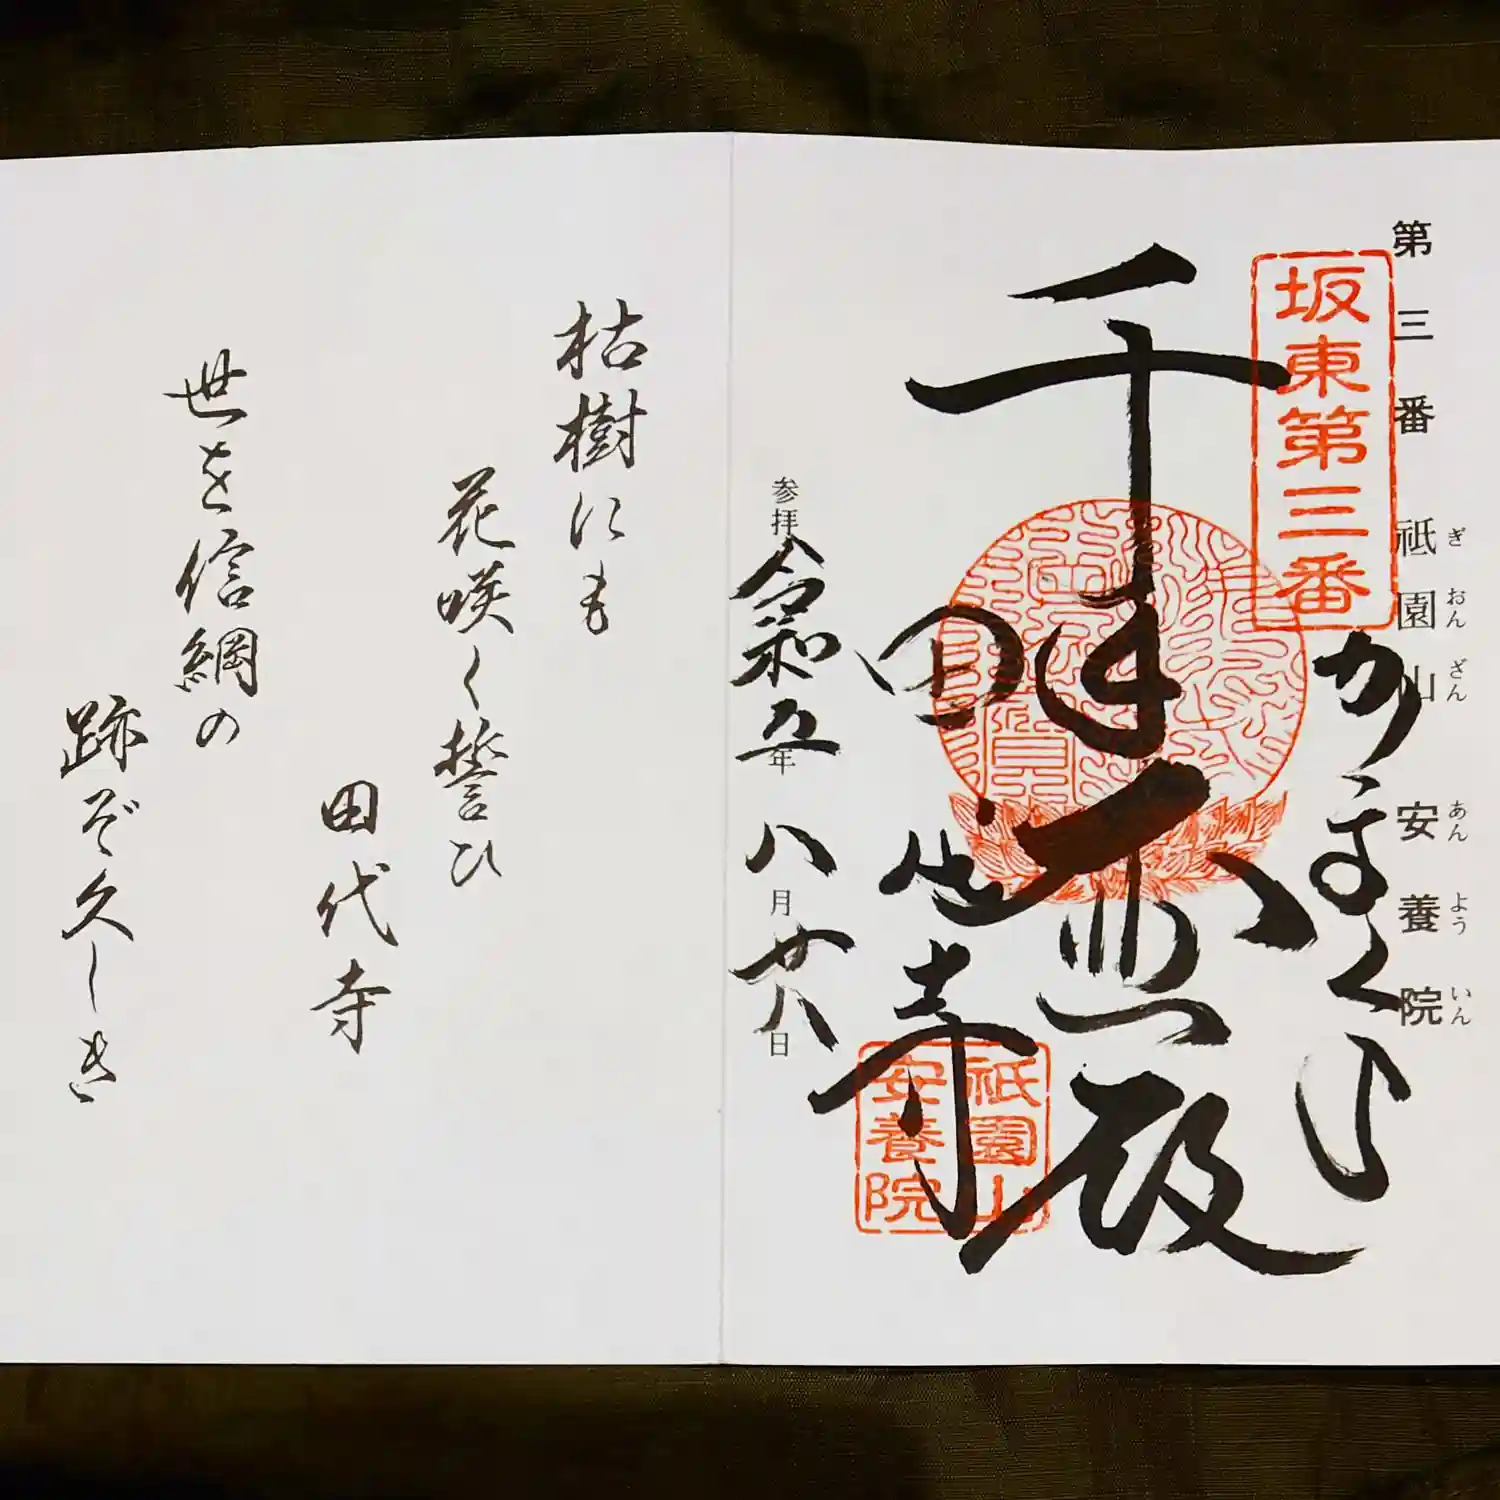 第三番 祇園山 安養院
ぎおんざん あんよういん
坂東第三番
かまくら
千手大悲殿
田代寺
祇園山
安養院
参拝 令和五年 八月廿八日
枯樹にも
花咲く誓ひ
田代寺
世を信綱の
跡ぞ久しき